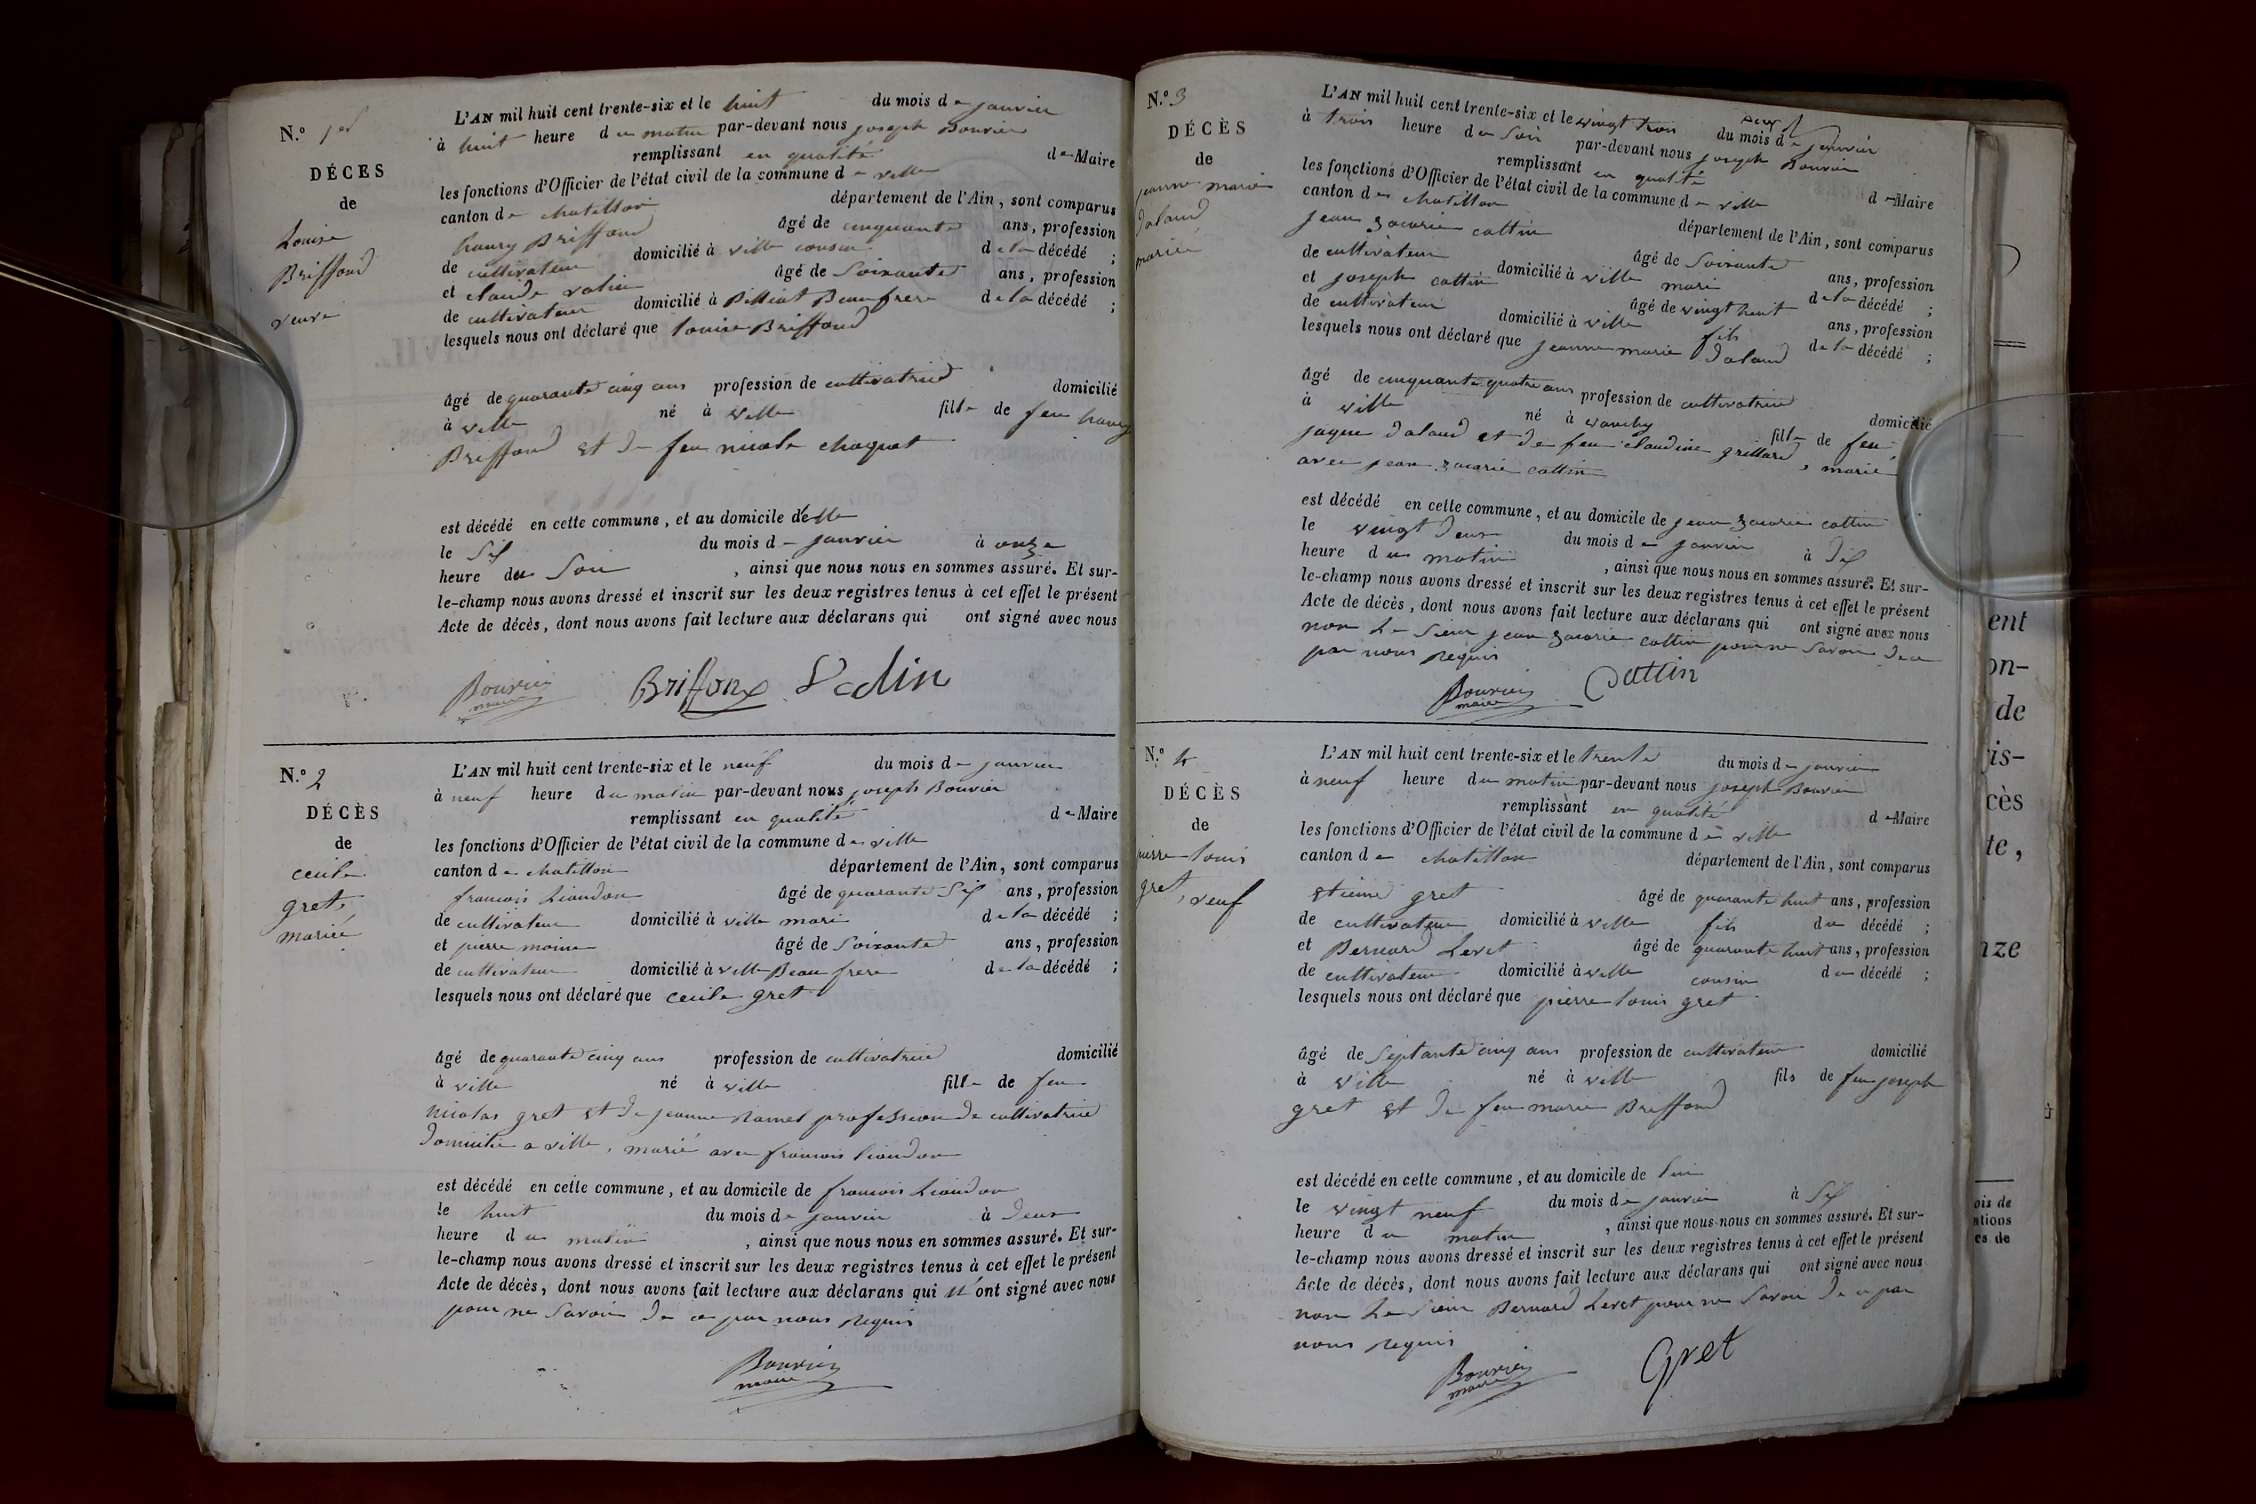 N.º 1er
DÉCES
de
Louise
Briffond
veuve
L'AN mil huit cent trente-six et le huit du mois de janvier
à huit heure du matin par-devant nous joseph Bouvier
remplissant en qualité de Maire
les fonctions d'Officier de l'état civil de la commune de ville
canton de chatillon département de l'Ain, sont comparus
haury Briffond âgé de cinquante ans, profession
de cultivateur domicilié à ville cousin de la décédé ;
et claude âgé de Soixante ans, profession
de cultivateur domicilié à Billiat Beau frere de la décédé ;
lesquels nous ont déclaré que louise Briffond
âgé de quarante cinq ans profession de cultivatrice domicilié
à ville né à ville fille de feu haury
Briffond et de feu nicole choquat
est décédé en cette commune, et au domicile d'elle
le Six du mois de janvier à onze
heure du Soir , ainsi que nous nous en sommes assuré. Et sur-
le-champ nous avons dressé et inscrit sur les deux registres tenus à cet effet le présent
Acte de décès, dont nous avons fait lecture aux déclarans qui ont signé avec nous
Bouvier Briffond
maire
N.º 2
DÉCÈS
de
cecile
gret
mariée
L'AN mil huit cent trente-six et le neuf du mois de janvier
à neuf heure du matin par-devant nous joseph Bouvier
remplissant en qualité de Maire
les fonctions d'Officier de l'état civil de la commune de ville
canton de chatillon département de l'Ain, sont comparus
francois Liaudon âgé de quarante Six ans, profession
de cultivateur domicilié à ville mari de la décédé ;
et pierre moine âgé de Soixante ans, profession
de cultivateur domicilié à ville Beau frere de la décédé ;
lesquels nous ont déclaré que cecile gret
âgé de quarante cinq ans profession de cultivatrice domicilié
à ville né à ville fille de feu
nicolas gret et de jeanne Ramel profession de cultivatrice
domicilie a ville, marié avec francois liaudon
est décédé en cette commune, et au domicile de francois Liaudon
le huit du mois de janvier à deux
heure du matin , ainsi que nous nous en sommes assuré. Et sur-
le-champ nous avons dressé et inscrit sur les deux registres tenus à cet effet le présent
Acte de décès, dont nous avons fait lecture aux déclarans qui n'ont signé avec nous
pour ne Savoir de ce par nous requis
Bouvier
maire
N.º 3
DÉCÈS
de
jeanne marie
daland
mariée
L'AN mil huit cent trente-six et le vingt trois du mois de janvier
à trois heure du Soir par-devant nous joseph Bouvier
remplissant en qualité de Maire
les fonctions d'Officier de l'état civil de la commune de ville
canton de chatillon département de l'Ain, sont comparus
jean zacarie cattin âgé de Soixante ans, profession
de cultivateur domicilié à ville mari de la décédé ;
et joseph cattin âgé de vingt huit ans, profession
de cultivateur domicilié à ville fils de la décédé ;
lesquels nous ont déclaré que jeanne marie daland
âgé de cinquante quatre ans profession de cultivatrice domicilié
à ville né à fille de feu
jaque daland et de feu claudine grillard, marié
avec jean zacarie cattin
est décédé en cette commune, et au domicile de jean zacarie cattin
le vingt deux du mois de janvier à dix
heure du matin , ainsi que nous nous en sommes assuré. Et sur-
le-champ nous avons dressé et inscrit sur les deux registres tenus à cet effet le présent
Acte de décès, dont nous avons fait lecture aux déclarans qui ont signé avec nous
non Le Sieur jean zacarie cattin pour ne Savoir de ce
par nous requis
Bouvier Cattin
maire
N.º 4
DÉCÈS
de
pierre louis
gret, veuf
L'AN mil huit cent trente-six et le trente du mois de janvier
à neuf heure du matin par-devant nous joseph Bouvier
remplissant en qualité de Maire
les fonctions d'Officier de l'état civil de la commune de ville
canton de chatillon département de l'Ain, sont comparus
etienne gret âgé de quarante huit ans, profession
de cultivateur domicilié à ville fils du décédé ;
et Bernard Levet âgé de quarante huit ans, profession
de cultivateur domicilié à ville cousin du décédé ;
lesquels nous ont déclaré que pierre louis gret
âgé de Septante cinq ans profession de cultivateur domicilié
à ville né à ville fils de feu joseph
gret et de feu marie Briffond
est décédé en cette commune, et au domicile de lui
le vingt neuf du mois de janvier à Six
heure du matin , ainsi que nous nous en sommes assuré. Et sur-
le-champ nous avons dressé et inscrit sur les deux registres tenus à cet effet le présent
Acte de décès, dont nous avons fait lecture aux déclarans qui ont signé avec nous
non Le Sieur Bernard Levet pour ne Savoir de ce par
nous requis
Bouvier Gret
maire